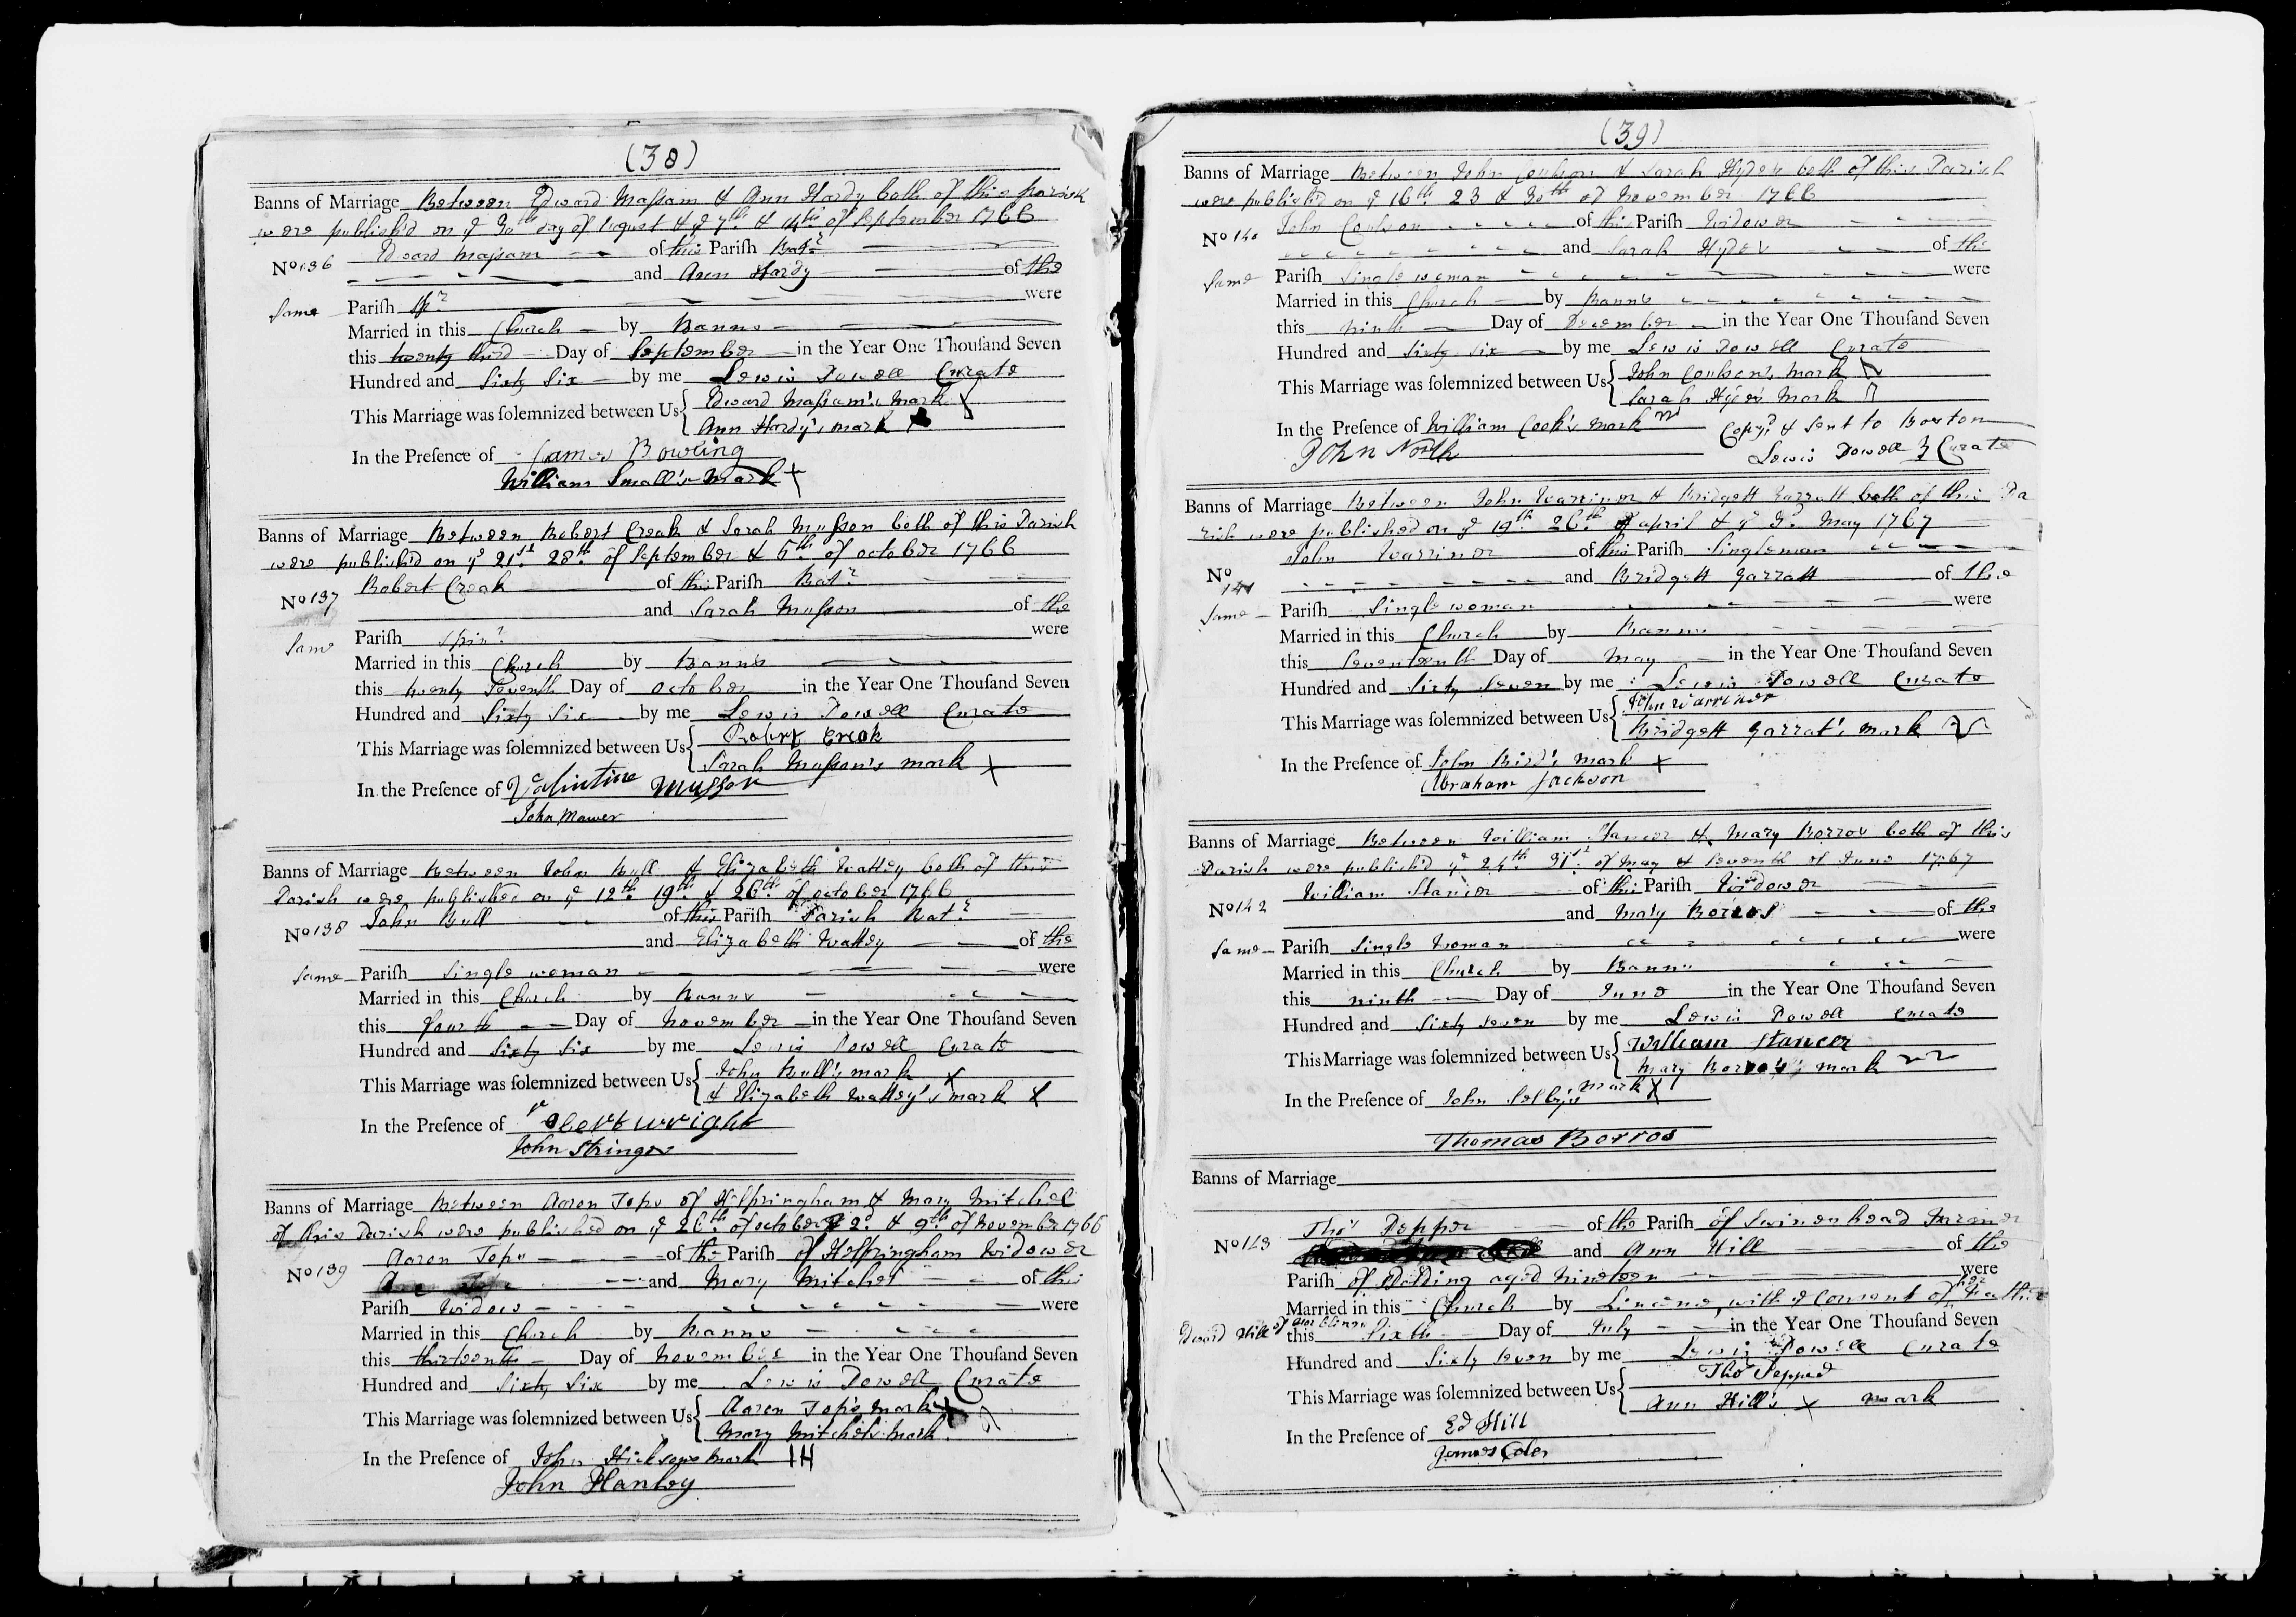 (38)
Banns of Marriage Between Edward Maſsam & Ann Hardy both of this parish
were publish'd on ye 30th day of August & ye 7th & 14th of September 1766
No 136 Edward Maſsam of this Parish Batr
and Ann Hardy of the
same Parish Spr were
Married in this Church by Banns
this twenty third Day of September in the Year One Thouſand Seven
Hundred and Sixty Six by me Lewis Powell Curate
This Marriage was ſolemnized between Us Edward Maſsam's mark X
Ann Hardy's mark
In the Preſence of James Bowling
William Small's mark +
Banns of Marriage Between Robert Creak & Sarah Muſson both of this Parish
were publish'd on ye 21st 28th of September & 5th of october 1766
No 137 Robert Creak of this Parish Batr
and Sarah Muſson of the
same Parish Spinr were
Married in this Church by Banns
this twenty Seventh Day of october in the Year One Thouſand Seven
Hundred and Sixty Six by me Lewis Powell Curate
This Marriage was ſolemnized between Us Robert Creak
Sarah Muſson's mark X
In the Preſence of Valintine Muſson
John Mawer
Banns of Marriage Between John Bull & Elizabeth Wattey both of this
Parish were published on ye 12th 19th & 26th of october 1766
No 138 John Bull of this Parish Parish Batr
and Elizabeth Wattey of the
same Parish Single woman were
Married in this Church by Banns
this fourth Day of november in the Year One Thouſand Seven
Hundred and Sixty Six by me Lewis Powell Curate
This Marriage was ſolemnized between Us John Bull's mark X
& Elizabeth Wattey's mark X
In the Preſence of wright
John Stringer
Banns of Marriage Between Aaron Tops of Helpringham & Mary Mitchel
of this Parish were published on ye 26th of october 2d & 9th of November 1766
No 139 Aaron Tops of the Parish of Helpringham Widower
and Mary Mitchel of this
Parish Widow were
Married in this Church by Banns
this thirteenth Day of November in the Year One Thouſand Seven
Hundred and Sixty Six by me Lewis Powell Curate
This Marriage was ſolemnized between Us Aaron Tops mark X
Mary Mitchels mark
In the Preſence of John Hicksons mark IH
John Hanley
(39)
Banns of Marriage Between John Coulson & Sarah Hydes both of this Parish
were publish'd on ye 16th 23 & 30th of November 1766
No 140 John Coulson of this Parish Widower
and Sarah Hydes of the
same Parish Single woman were
Married in this Church by Banns
this ninth Day of December in the Year One Thouſand Seven
Hundred and Sixty Six by me Lewis Powell Curate
This Marriage was ſolemnized between Us John Coulson's mark
Sarah Hydes mark
In the Preſence of William Cook's mark Copy'd & Sent to Boston
John North Lewis Powell Curate
Banns of Marriage Between John Warriner & Bridgett Garratt both of this Pa
rish were published on ye 19th 26th of april & ye 3d May 1767
No 141 John Warriner of this Parish Singleman
and Bridgett Garratt of the
same Parish Single woman were
Married in this Church by Banns
this Seventeenth Day of May in the Year One Thouſand Seven
Hundred and Sixty Seven by me Lewis Powell Curate
This Marriage was ſolemnized between Us John Warriner
Bridgett Garrat's mark
In the Preſence of John Bird's mark +
Abraham Jackson
Banns of Marriage Between William Stancer & Mary Borros both of this
Parish were publish'd ye 24th 31st of may & Seventh of June 1767
No 142 William Stancer of this Parish Widower
and Mary Borros of the
same Parish Single Woman were
Married in this Church by Banns
this ninth Day of June in the Year One Thouſand Seven
Hundred and Sixty Seven by me Lewis Powell Curate
This Marriage was ſolemnized between Us William Stancer
Mary Borros's mark
In the Preſence of John Selbys mark X
Thomas Borros
Banns of Marriage
No 143 Thos Pepper of the Parish of Swineshead Farmer
and Ann Hill of the
Parish of aged Nineteen were
Married in this Church by Licence, with ye Consent of her Father
Edward Hill of this Sixth Day of July in the Year One Thouſand Seven
Hundred and Sixty Seven by me Lewis Powell Curate
This Marriage was ſolemnized between Us Thos Pepper
Ann Hill's X mark
In the Preſence of Ed Hill
James Coles